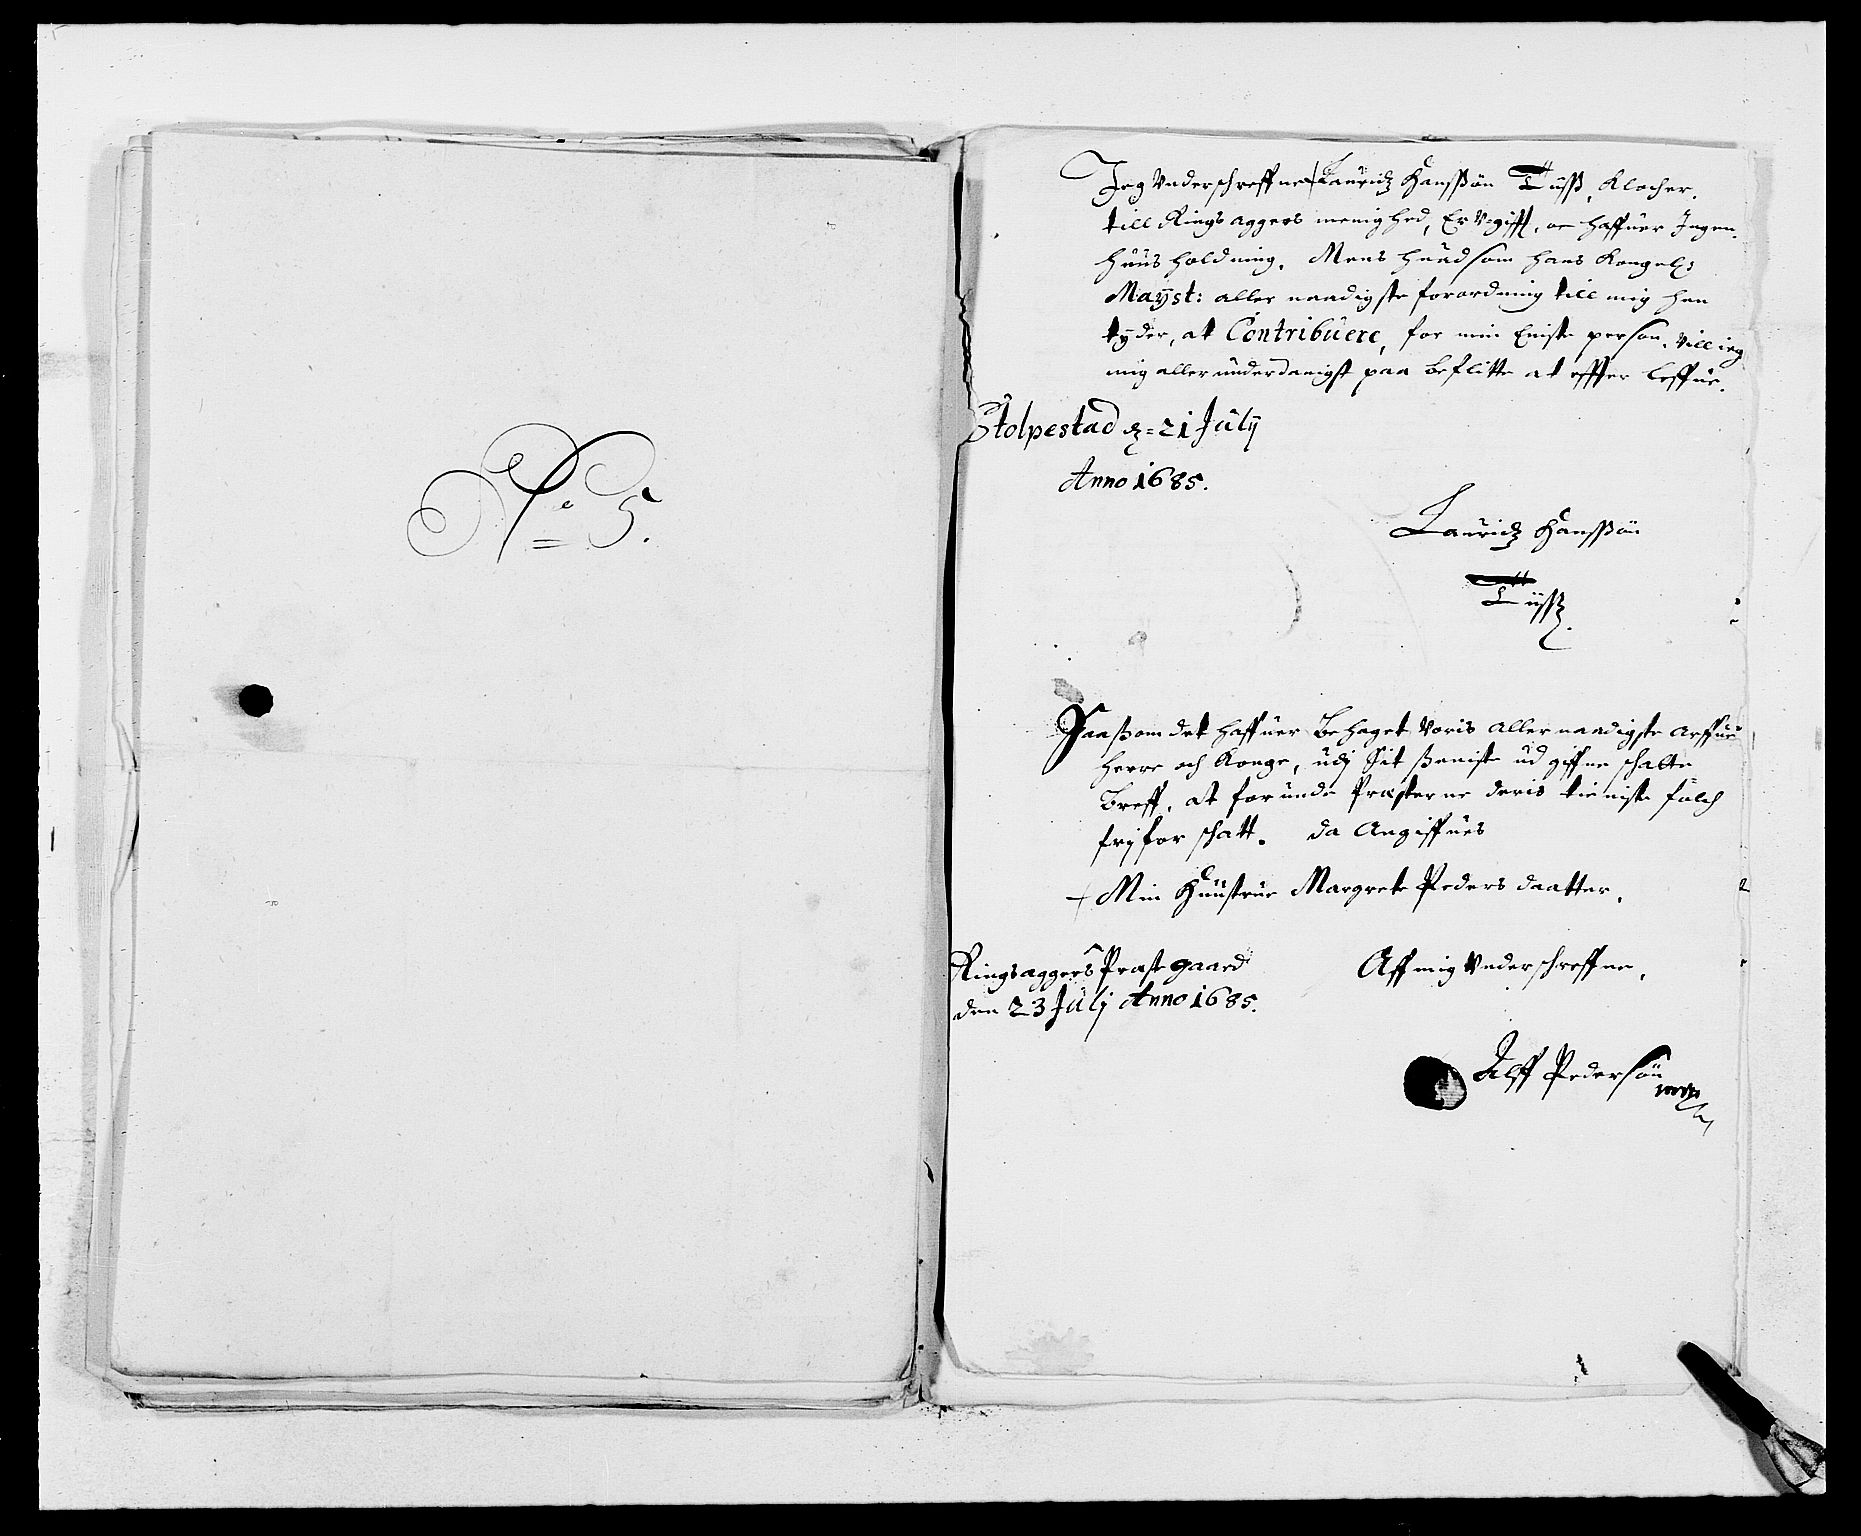 No 5.
Jeg Underschreffne Lauridz Hanssøn Tuss, Klocher,
till Ringsaggers menighed, Er V-gifft, oc haffuer Ingen
huusholdning. Mens huadsom hans Kongel:
Mayst: aller naadigste forordning till mig hen
tyder, at Contribuere, for min Eniste person. Vill ieg
mig aller underdanigst paa beflitte at effterleffue.
Stolpestad d: 21 Julij
Anno 1685.
Lauridz Hanssøn
Tuss.
Saassom det haffuer Behaget Voris Aller naadigste Arffue
herre och Konge, udj Sit seniste udgiffne schatte
Breff, at forunde Præsterne deris tieniste folch
frij for schatt. da Angiffues
Min Huustrue Margrete Peders daatter.
Ringsaggers Præstegaard
den 23 Julj Anno 1685.
Aff mig Underschreffne,
Alff Pedersøn